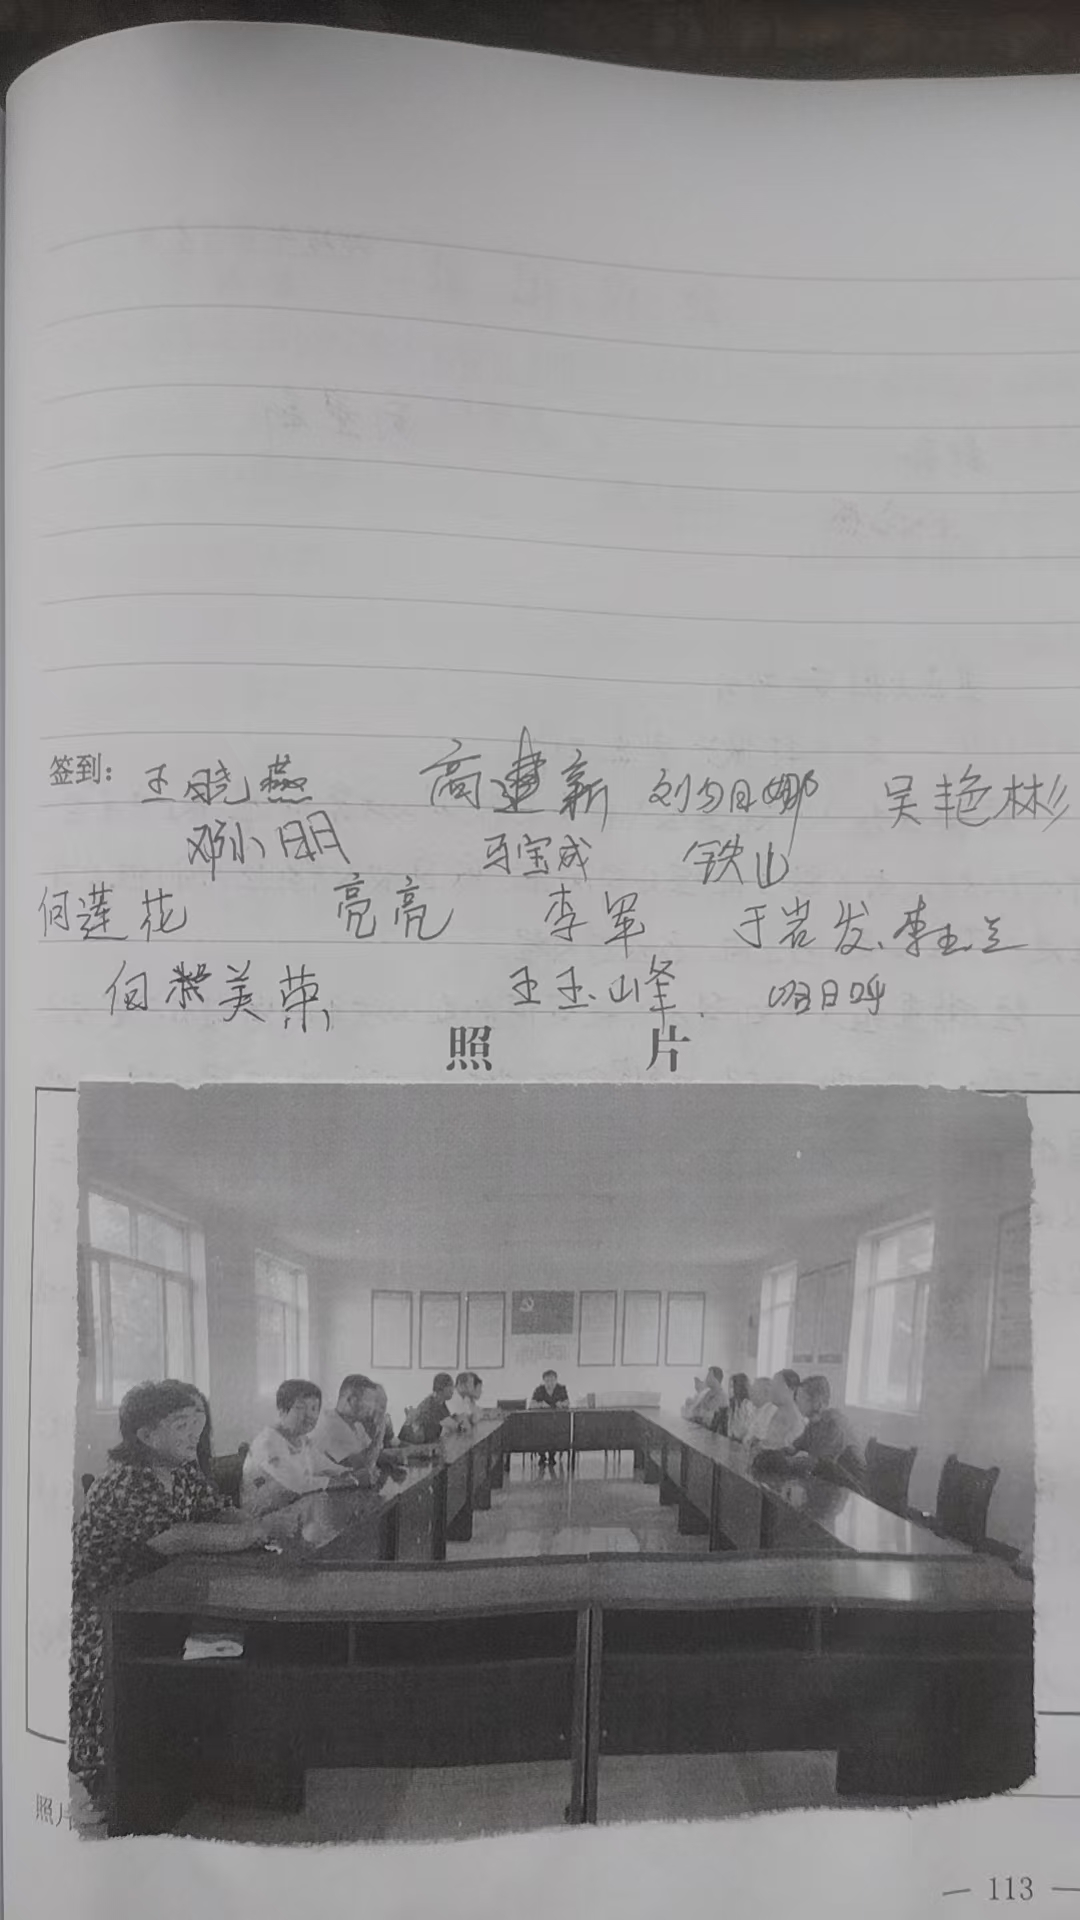 签到: 王晓燕 高建新 刘乌日娜 吴艳彬
邓小明 马宝成 铁山
何莲花 亮亮 李军 于岩发、李玉兰
何美荣 王玉山峰
照片
照片
— 113 —